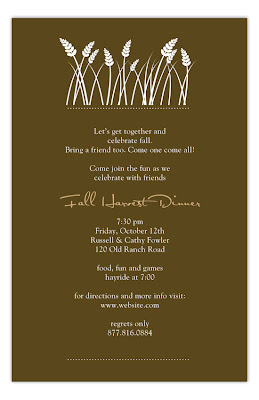 Let's get together and
celebrate fall.
Bring a friend too. Come one come all!
Come join the fun as we
celebrate with friends
Fall Harvest Dinner
7:30 pm
Friday, October 12th
Russell & Cathy Fowler
120 Old Ranch Road
food, fun and games
hayride at 7:00
for directions and more info visit:
www.website.com
regrets only
877.816.0884